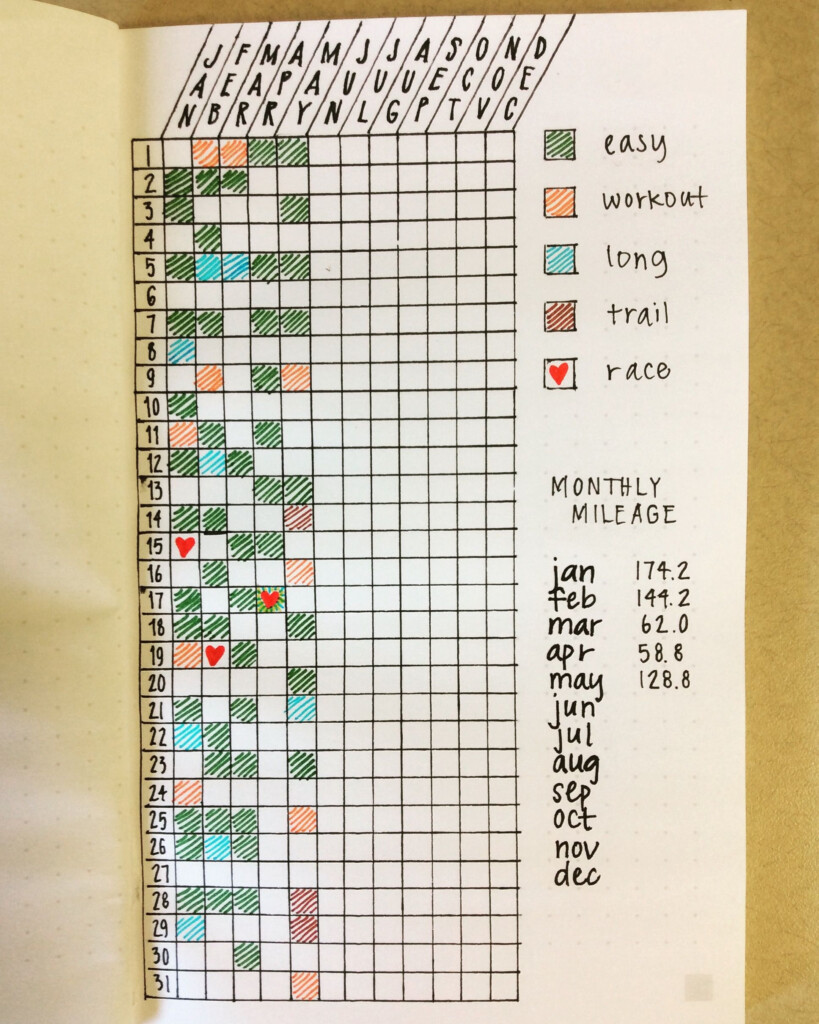 JAN FEB MAR APR MAY JUN JUL AUG SEP OCT NOV DEC
1
2
3
4
5
6
7
8
9
10
11
12
13
14
15
16
17
18
19
20
21
22
23
24
25
26
27
28
29
30
31
easy
workout
long
trail
race
MONTHLY
MILEAGE
jan 174.2
feb 144.2
mar 62.0
apr 58.8
may 128.8
jun
jul
aug
sep
oct
nov
dec